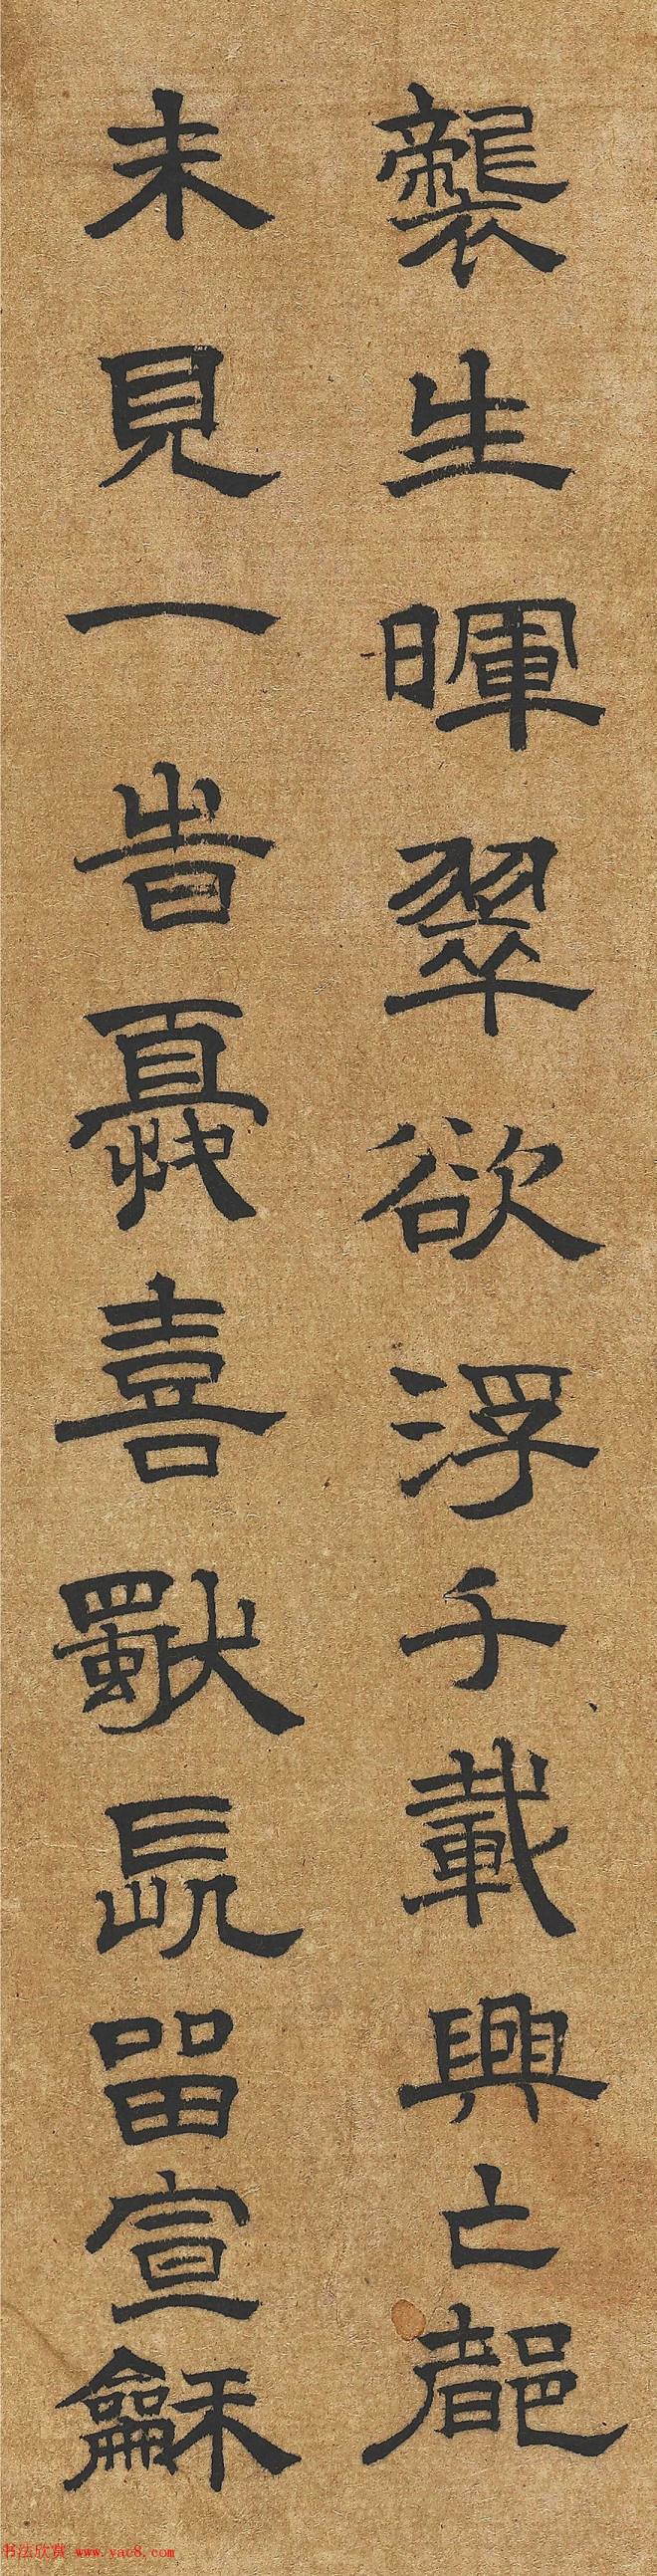 襲生暉翠欲浮千載興亡都
未見一時憂喜獨長留宣龢
书法欣赏 www.yac8.com